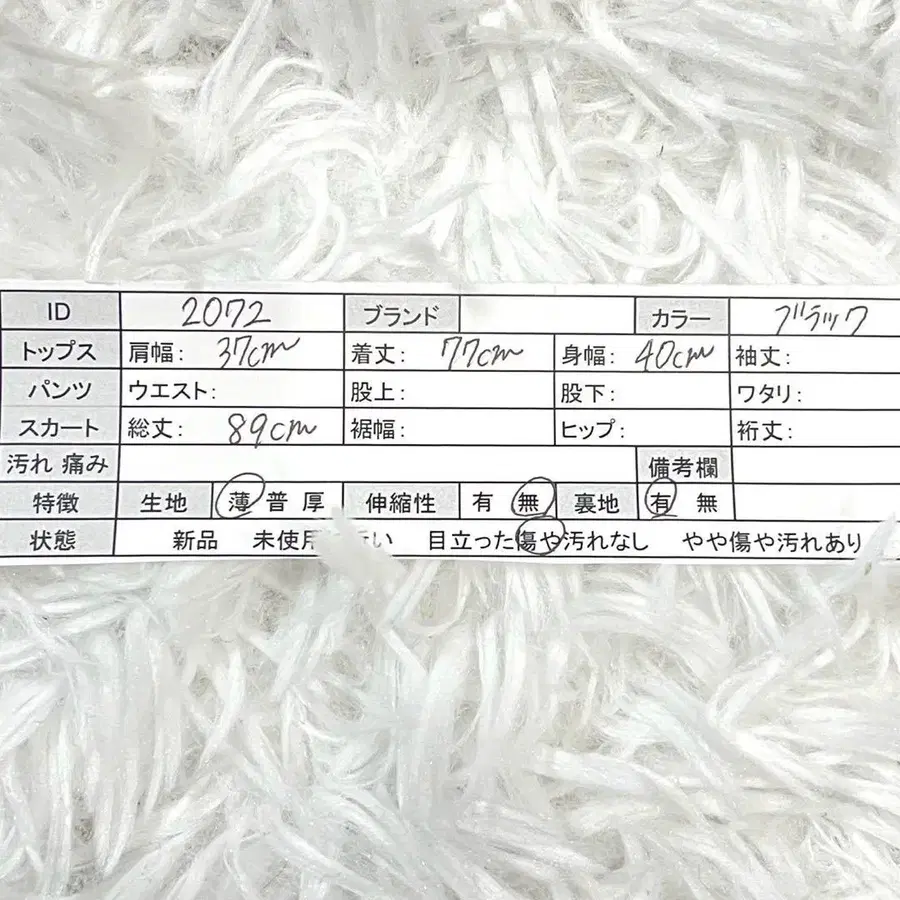 ID 2072 ブランド カラー ブラック
トップス 肩幅: 37cm 着丈: 77cm 身幅: 40cm 袖丈:
パンツ ウエスト: 股上: 股下: ワタリ:
スカート 総丈: 89cm 裾幅: ヒップ: 裄丈:
汚れ 痛み 備考欄
特徴 生地 薄 普 厚 伸縮性 有 無 裏地 有 無
状態 新品 未使用 近い 目立った傷や汚れなし やや傷や汚れあり